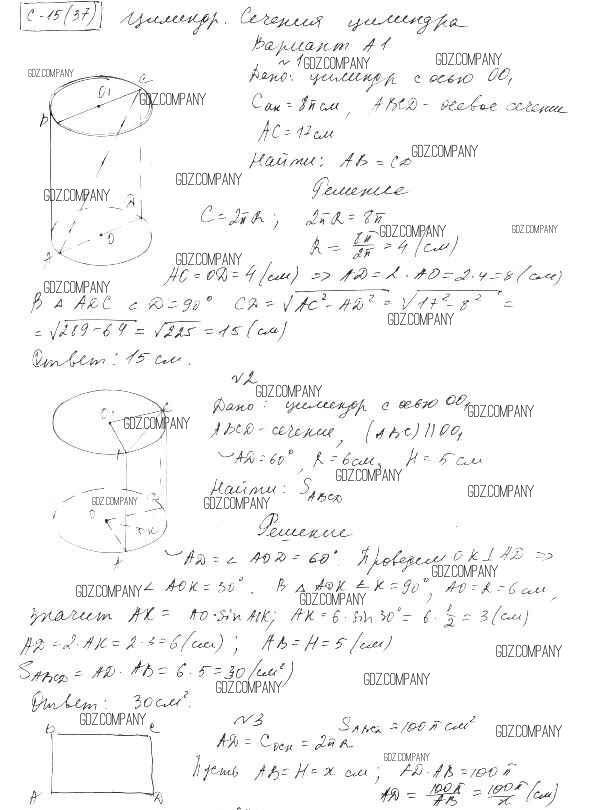 С-15(37) Цилиндр. Сечения цилиндра
Вариант А1
№1
Дано: цилиндр с осью OO₁
Cосн = 8π см, ABCD - осевое сечение
AC = 17 см
Найти: AB = CD
Решение
C = 2πR; 2πR = 8π
R = 8π/2π = 4 (см)
AO = OD = 4 (см) => AD = 2·AO = 2·4 = 8 (см)
В △ ADC ∠D = 90° CD = √AC² - AD² = √17² - 8² =
= √289 - 64 = √225 = 15 (см)
Ответ: 15 см.
№2
Дано: цилиндр с осью OO₁
ABCD - сечение, (ABC) || OO₁
◡AD = 60°, R = 6 см, H = 5 см
Найти: SABCD
Решение
◡AD = ∠AOD = 60°. Проведем OK ⊥ AD =>
∠AOK = 30°. В △ AOK ∠K = 90°, AO = R = 6 см,
значит AK = AO·sin AOK; AK = 6·sin 30° = 6·1/2 = 3 (см)
AD = 2·AK = 2·3 = 6 (см); AB = H = 5 (см)
SABCD = AD·AB = 6·5 = 30 (см²)
Ответ: 30 см².
№3
SABCD = 100π см²
AD = Cосн = 2πR
Пусть AB = H = x см; AD·AB = 100π
AD = 100π/AB = 100π/x (см)
GDZ.COMPANY